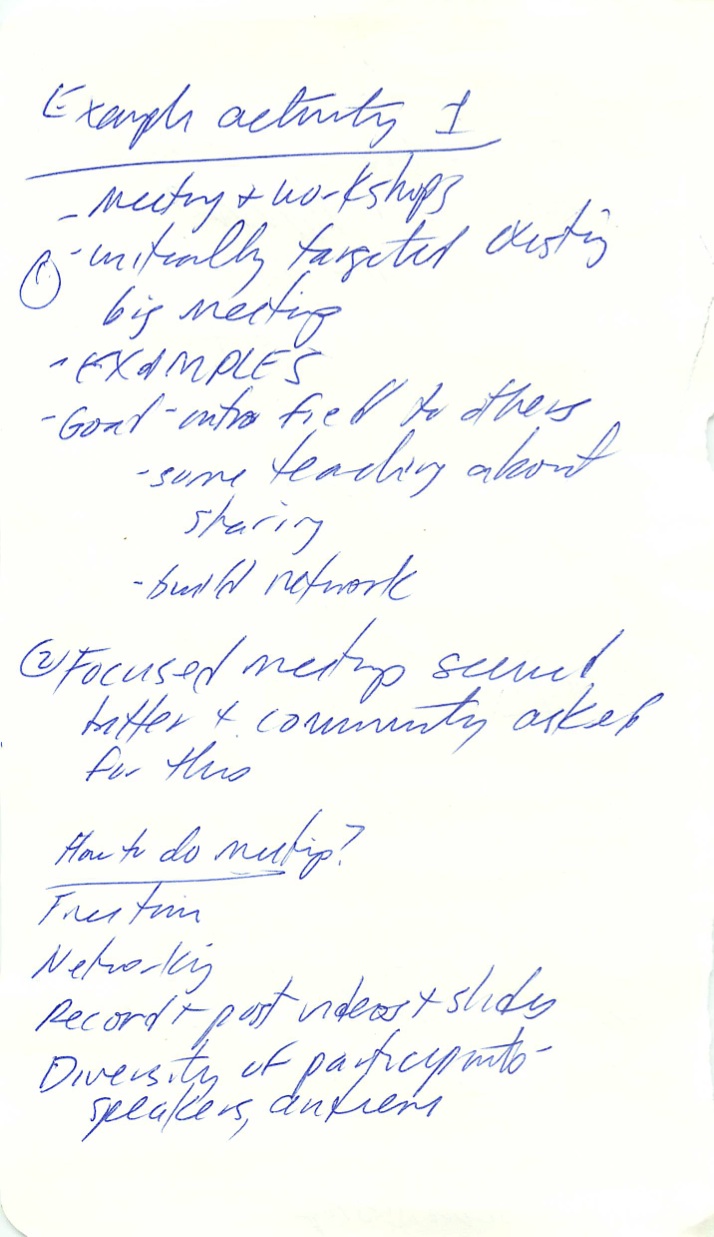 Example activity 1
- Meetings + workshops
① - initially targeted existing
big meetings
- EXAMPLES
- Goal - intro field to others
- some teaching about
sharing
- build network
② Focused meetings seemed
better + community asked
for this
How to do meetings?
Free time
Networking
Record + post videos + slides
Diversity of participants -
speakers, audience